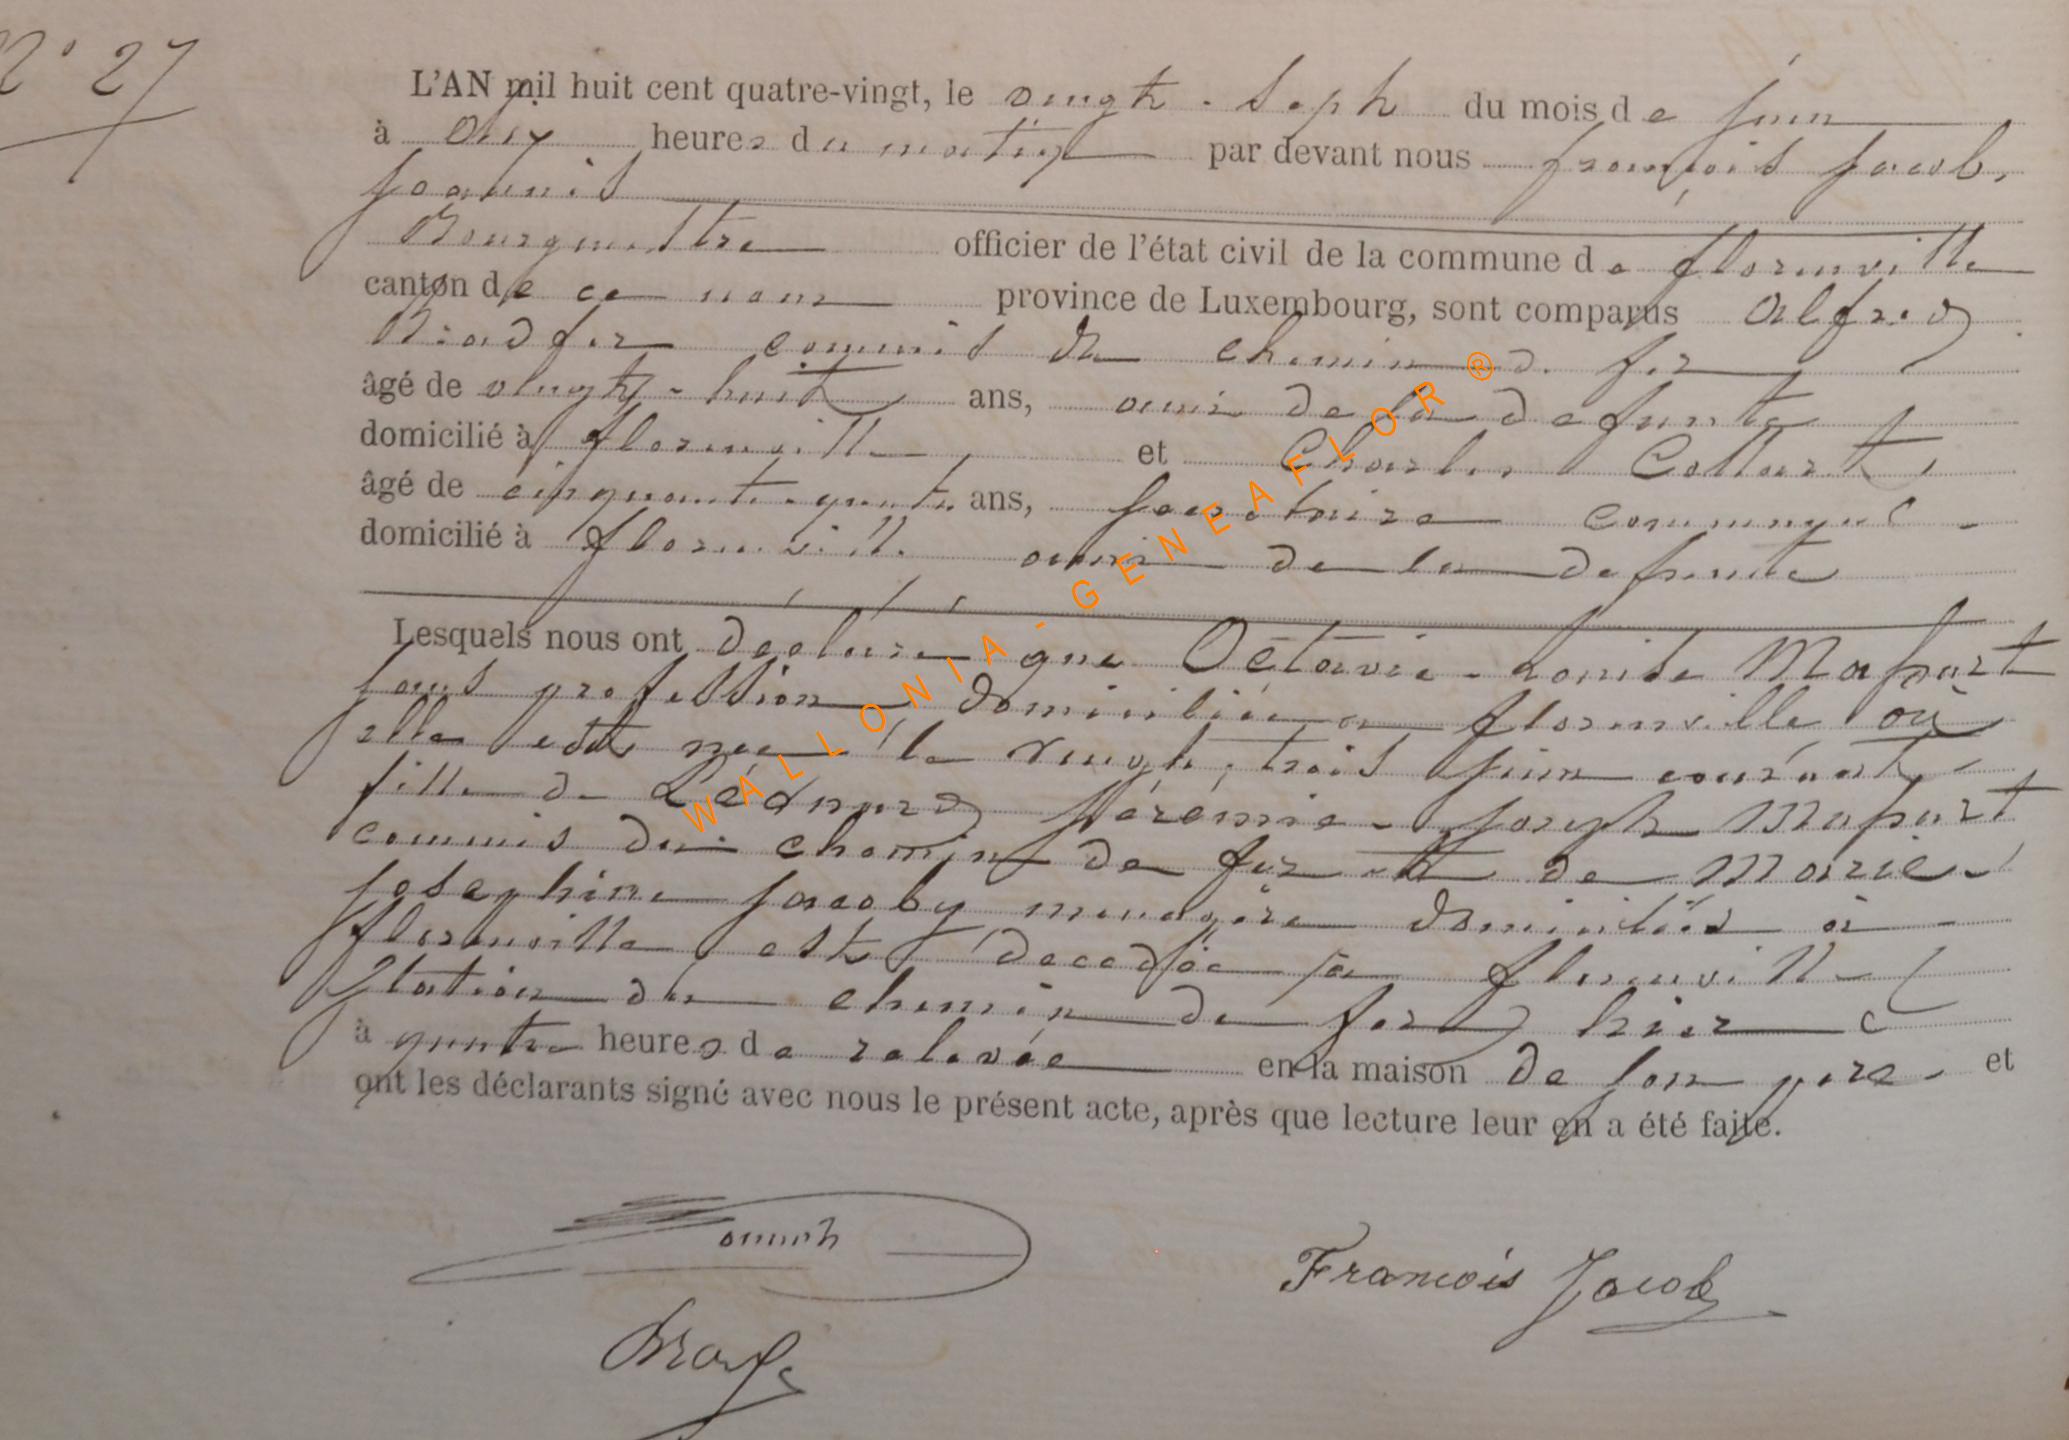 N° 27
L'AN mil huit cent quatre-vingt, le vingt-sept du mois de juin
à dix heures du matin par devant nous françois Jacob,
Joannis
Bourgmestre officier de l'état civil de la commune de florenville
canton de ce nom province de Luxembourg, sont comparus Alfred
commis du chemin de fer
âgé de vingt-huit ans, ami de la defunte
domicilié à florenville et Charles Collart,
âgé de cinquante-quatre ans, secretaire communal
domicilié à florenville ami de la defunte
Lesquels nous ont déclaré que Octavie-Louise Massart
sans profession domiciliée à florenville où
elle est née le vingt-trois juin courant,
fille de Léonard Jérémie-Joseph Massart
commis du chemin de fer et de Marie-
Josephine Jacoby menagère domiciliés à
florenville est décedée à florenville
station du chemin de fer hier
à quatre heures de relevée en la maison de son père. et
ont les déclarants signé avec nous le présent acte, après que lecture leur en a été faite.
François Jacob
WALLONIA - GENEAFLOR ®